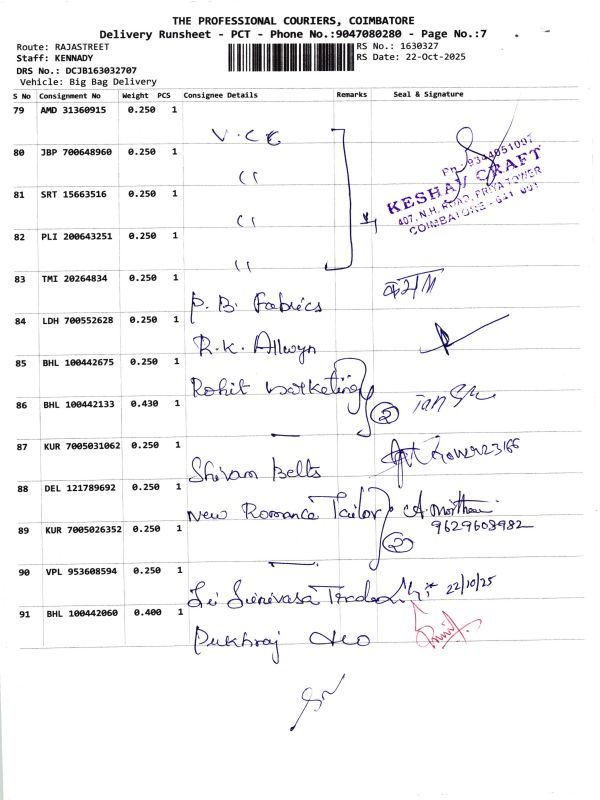 THE PROFESSIONAL COURIERS, COIMBATORE
Delivery Runsheet - PCT - Phone No.:9047080280 - Page No.:7
Route: RAJASTREET
RS No.: 1630327
Staff: KENNADY
RS Date: 22-Oct-2025
DRS No.: DCJB163032707
Vehicle: Big Bag Delivery
S No Consignment No Weight PCS Consignee Details Remarks Seal & Signature
79 AMD 31360915 0.250 1
V.CC
80 JBP 700648960 0.250 1
"
81 SRT 15663516 0.250 1
"
4
82 PLI 200643251 0.250 1
"
Ph- 9344051097
KESHAV CRAFT
407, N.H. ROAD, PRIYA TOWER
COIMBATORE - 641 001
83 TMI 20264834 0.250 1
P. B. Fabrics
84 LDH 700552628 0.250 1
R.K. Allwyn
85 BHL 100442675 0.250 1
Rohit Marketing
86 BHL 100442133 0.430 1
2
87 KUR 7005031062 0.250 1
Shivam Belts
88 DEL 121789692 0.250 1
New Romance Tailor
9629608982
89 KUR 7005026352 0.250 1
2
90 VPL 953608594 0.250 1
Sri Srinivasa Traders
22/10/25
91 BHL 100442060 0.400 1
Pukhraj